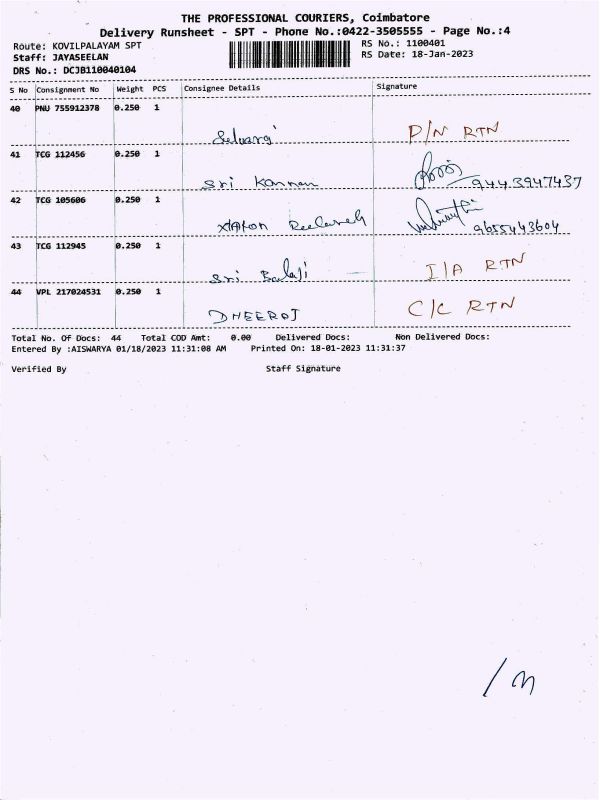 THE PROFESSIONAL COURIERS, Coimbatore
Delivery Runsheet - SPT - Phone No.:0422-3505555 - Page No.:4
Route: KOVILPALAYAM SPT
RS No.: 1100401
Staff: JAYASEELAN
RS Date: 18-Jan-2023
DRS No.: DCJB110040104
S No Consignment No Weight PCS Consignee Details Signature
40 PNU 755912378 0.250 1
Selvaraj P/N RTN
41 TCG 112456 0.250 1
Sri Kannan 9443947437
42 TCG 105606 0.250 1
9655443604
43 TCG 112945 0.250 1
Sri Balaji I/A RTN
44 VPL 217024531 0.250 1
DHEERAJ C/C RTN
Total No. Of Docs: 44 Total COD Amt: 0.00 Delivered Docs: Non Delivered Docs:
Entered By :AISWARYA 01/18/2023 11:31:08 AM Printed On: 18-01-2023 11:31:37
Verified By Staff Signature